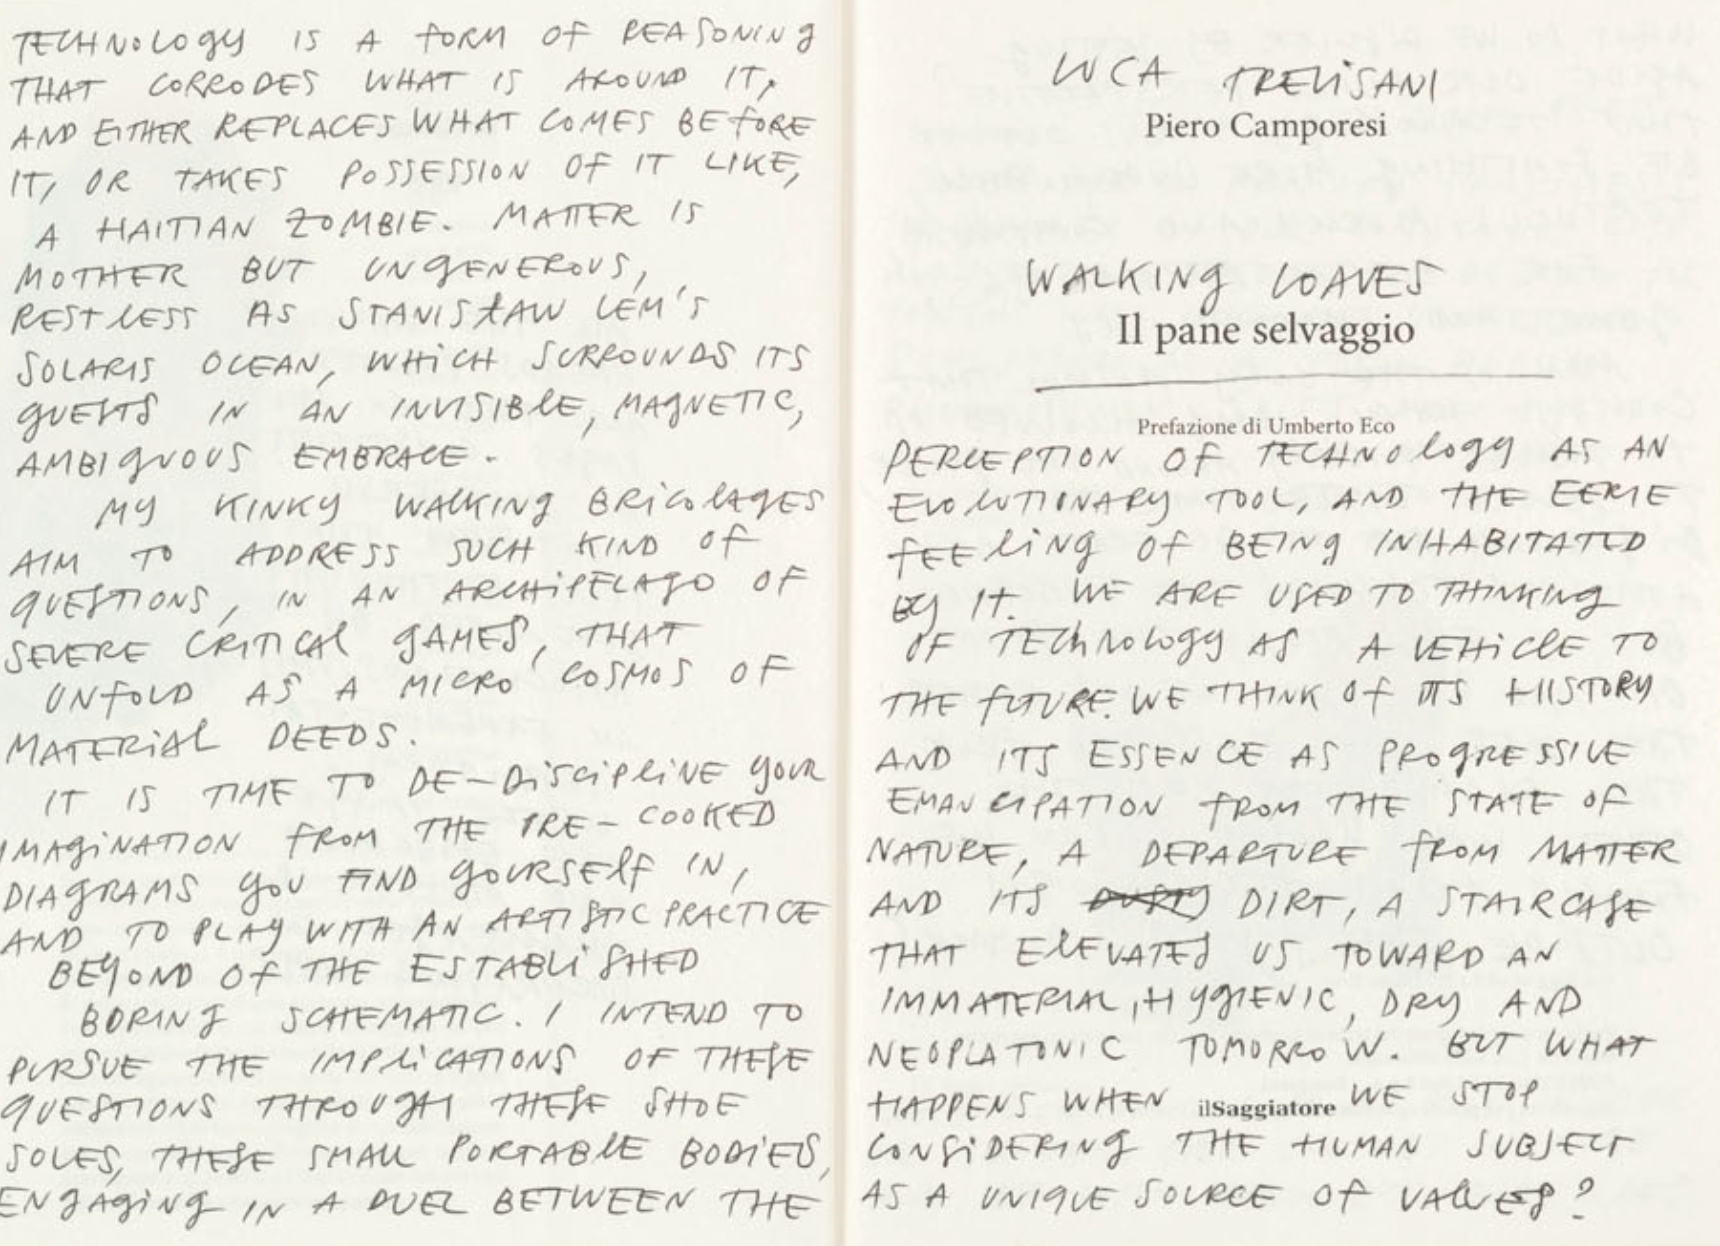 TECHNOLOGY IS A FORM OF REASONING
THAT CORRODES WHAT IS AROUND IT,
AND EITHER REPLACES WHAT COMES BEFORE
IT, OR TAKES POSSESSION OF IT LIKE,
A HAITIAN ZOMBIE. MATTER IS
MOTHER BUT UNGENEROUS,
RESTLESS AS STANISŁAW LEM'S
SOLARIS OCEAN, WHICH SURROUNDS ITS
GUESTS IN AN INVISIBLE, MAGNETIC,
AMBIGUOUS EMBRACE.
MY KINKY WALKING BRICOLAGES
AIM TO ADDRESS SUCH KIND OF
QUESTIONS, IN AN ARCHIPELAGO OF
SEVERE CRITICAL GAMES, THAT
UNFOLD AS A MICRO COSMOS OF
MATERIAL DEEDS.
IT IS TIME TO DE-DISCIPLINE YOUR
IMAGINATION FROM THE PRE-COOKED
DIAGRAMS YOU FIND YOURSELF IN,
AND TO PLAY WITH AN ARTISTIC PRACTICE
BEYOND OF THE ESTABLISHED
BORING SCHEMATIC. I INTEND TO
PURSUE THE IMPLICATIONS OF THESE
QUESTIONS THROUGH THESE SHOE
SOLES, THESE SMALL PORTABLE BODIES,
ENGAGING IN A DUEL BETWEEN THE
LUCA TREVISANI
Piero Camporesi
WALKING LOAVES
Il pane selvaggio
Prefazione di Umberto Eco
PERCEPTION OF TECHNOLOGY AS AN
EVOLUTIONARY TOOL, AND THE EERIE
FEELING OF BEING INHABITATED
BY IT. WE ARE USED TO THINKING
OF TECHNOLOGY AS A VEHICLE TO
THE FUTURE. WE THINK OF ITS HISTORY
AND ITS ESSENCE AS PROGRESSIVE
EMANCIPATION FROM THE STATE OF
NATURE, A DEPARTURE FROM MATTER
AND ITS DIRT, A STAIRCASE
THAT ELEVATES US TOWARD AN
IMMATERIAL, HYGIENIC, DRY AND
NEOPLATONIC TOMORROW. BUT WHAT
HAPPENS WHEN ilSaggiatore WE STOP
CONSIDERING THE HUMAN SUBJECT
AS A UNIQUE SOURCE OF VALUES?